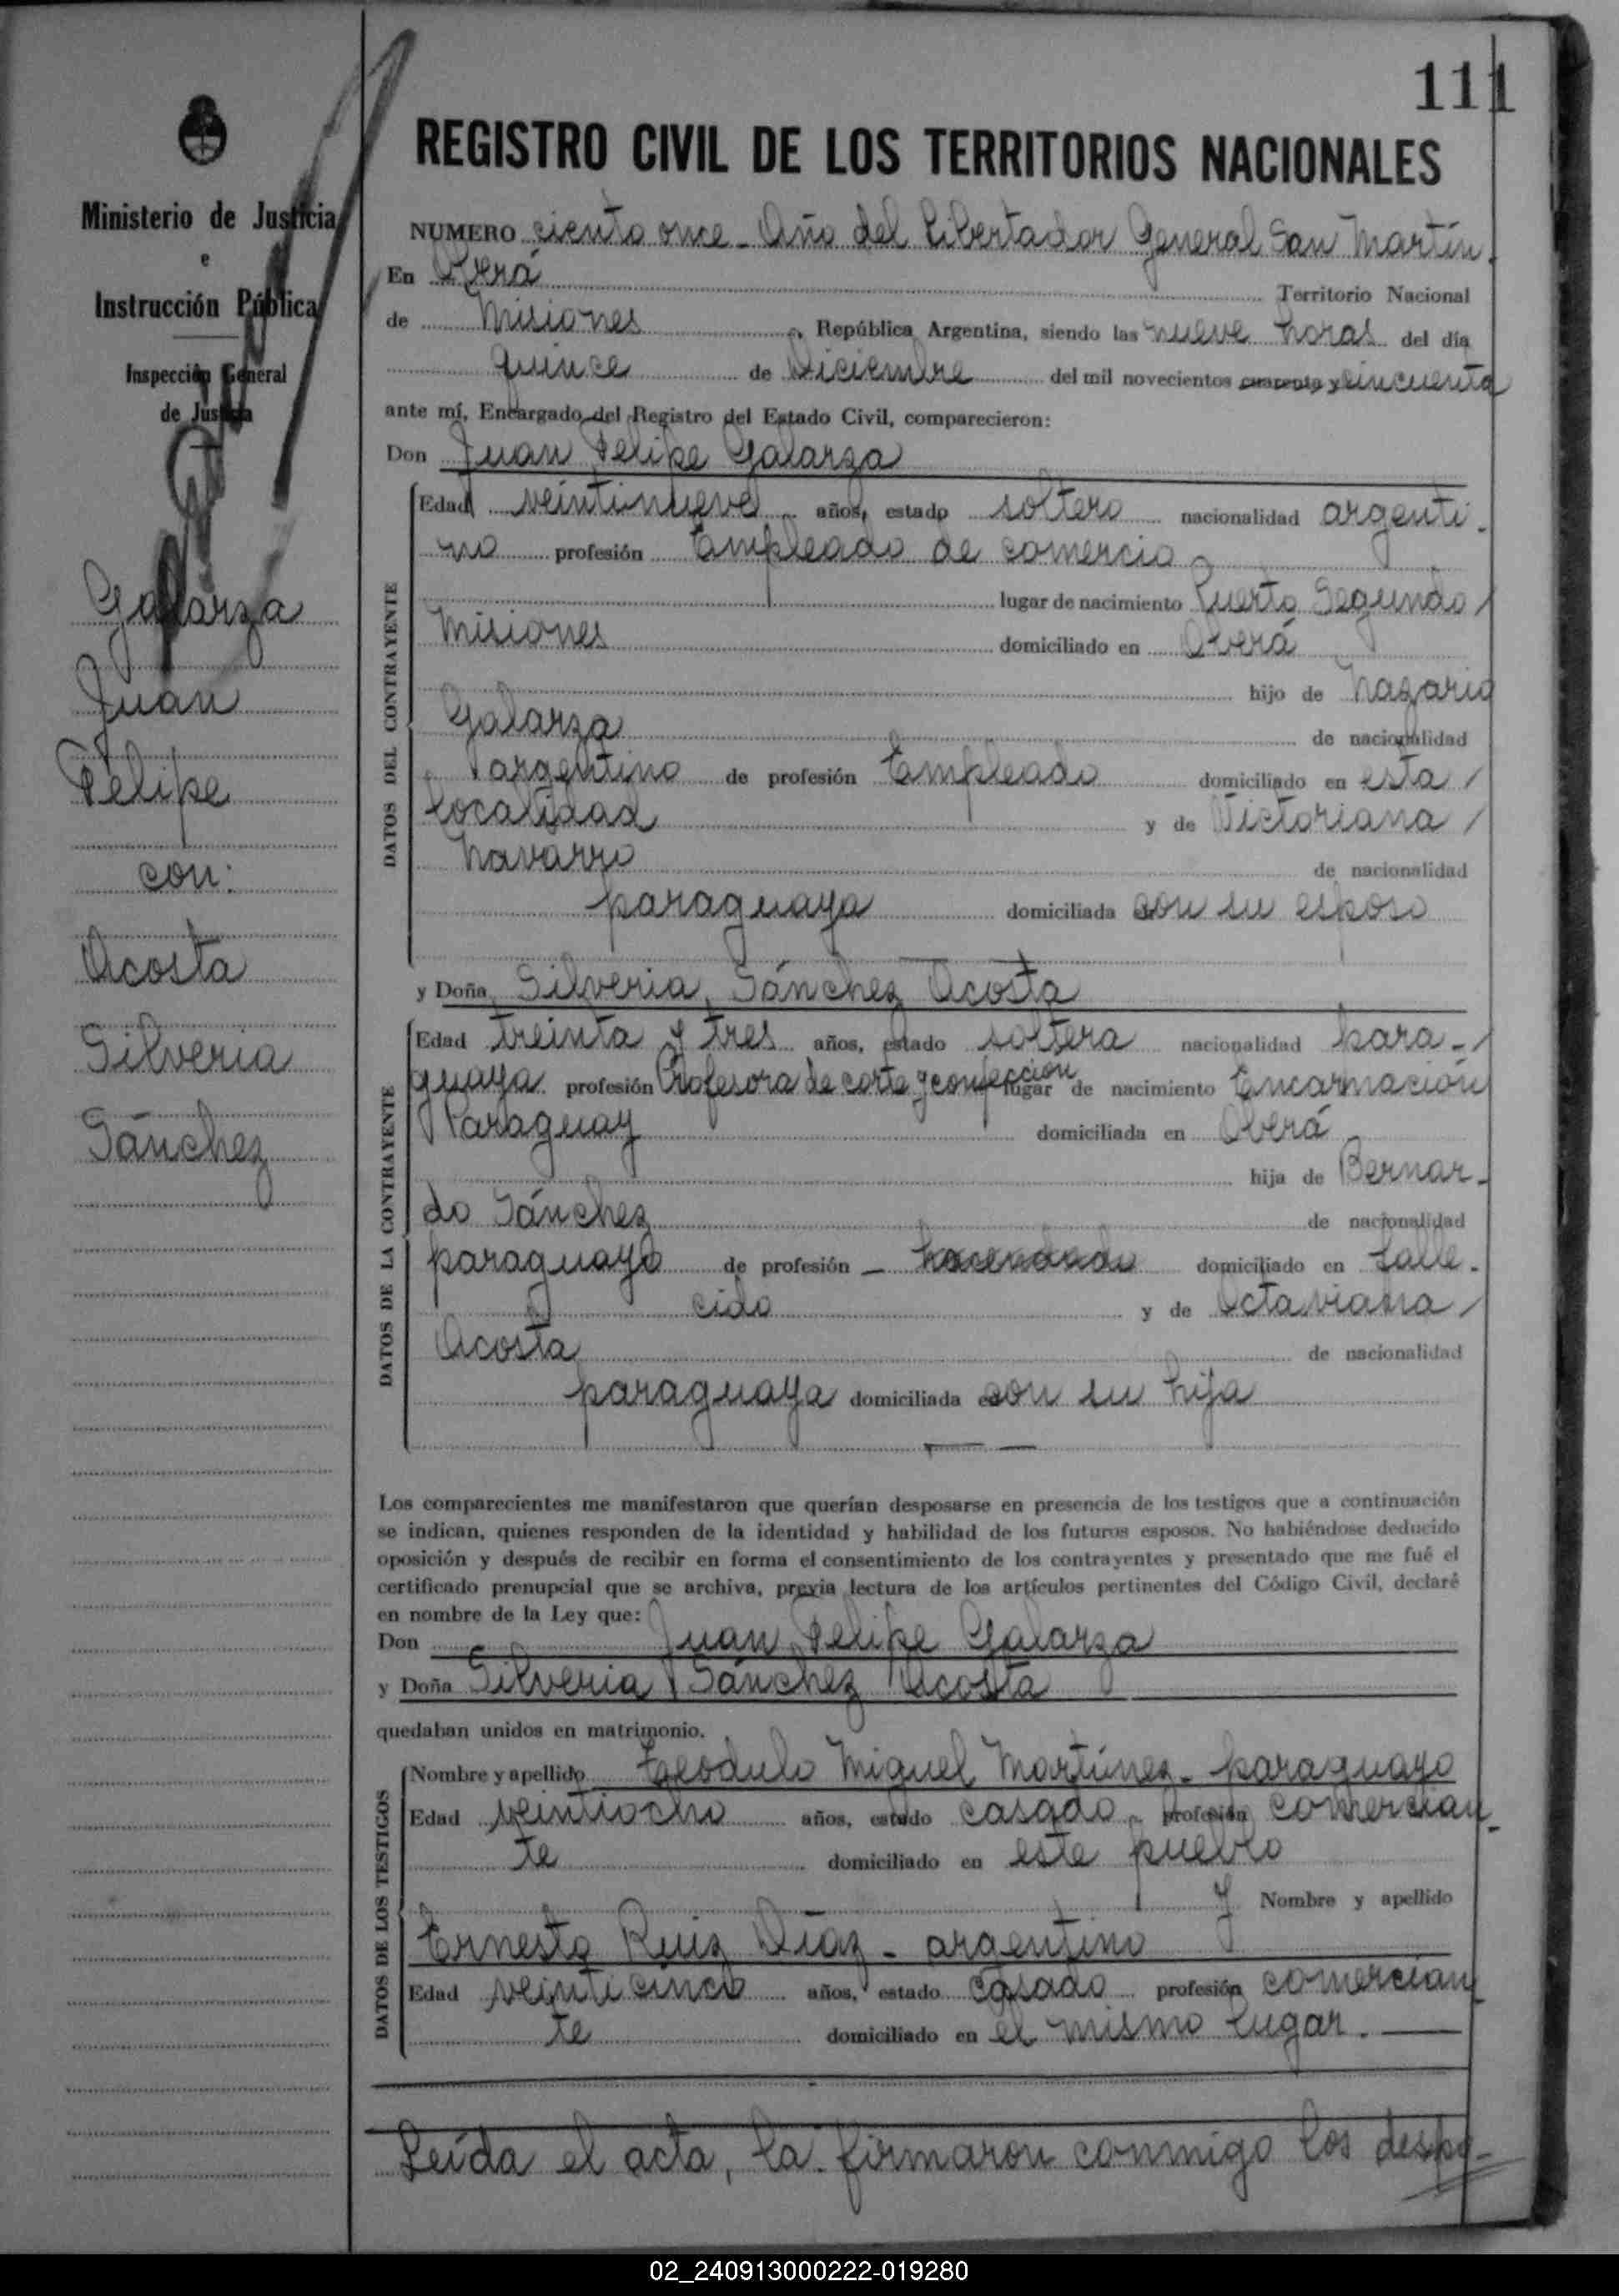 111
Ministerio de Justicia
e
Instrucción Pública
Inspección General
de Justicia
Galarza
Juan
Felipe
con:
Acosta
Silveria
Sánchez
REGISTRO CIVIL DE LOS TERRITORIOS NACIONALES
NUMERO ciento once - Año del Libertador General San Martín.
En Oberá Territorio Nacional
de Misiones, República Argentina, siendo las nueve horas del día
quince de Diciembre del mil novecientos cuarenta y cincuenta
ante mí, Encargado del Registro del Estado Civil, comparecieron:
Don Juan Felipe Galarza
DATOS DEL CONTRAYENTE
Edad veintinueve años, estado soltero nacionalidad argenti-
no profesión Empleado de comercio
lugar de nacimiento Puerto Segundo /
Misiones domiciliado en Oberá
hijo de Nazario
Galarza de nacionalidad
argentino de profesión Empleado domiciliado en esta /
localidad y de Victoriana /
Navarro de nacionalidad
paraguaya domiciliada con su esposo
y Doña Silveria Sánchez Acosta
DATOS DE LA CONTRAYENTE
Edad treinta y tres años, estado soltera nacionalidad para-/
guaya profesión Profesora de corte y confección lugar de nacimiento Encarnación
Paraguay domiciliada en Oberá
hija de Bernar-
do Sánchez de nacionalidad
paraguayo de profesión - hacendado domiciliado en falle-
cido y de Octaviana /
Acosta de nacionalidad
paraguaya domiciliada con su hija
Los comparecientes me manifestaron que querían desposarse en presencia de los testigos que a continuación
se indican, quienes responden de la identidad y habilidad de los futuros esposos. No habiéndose deducido
oposición y después de recibir en forma el consentimiento de los contrayentes y presentado que me fué el
certificado prenupcial que se archiva, previa lectura de los artículos pertinentes del Código Civil, declaré
en nombre de la Ley que:
Don Juan Felipe Galarza
y Doña Silveria Sánchez Acosta
quedaban unidos en matrimonio.
DATOS DE LOS TESTIGOS
Nombre y apellido Teódulo Miguel Martínez - paraguayo
Edad veintiocho años, estado casado - profesión comercian-
te domiciliado en este pueblo
y Nombre y apellido
Ernesto Ruiz Díaz - argentino
Edad veinticinco años, estado casado profesión comercian-
te domiciliado en el mismo lugar.
Leída el acta, la firmaron conmigo los despo-
02_240913000222-019280